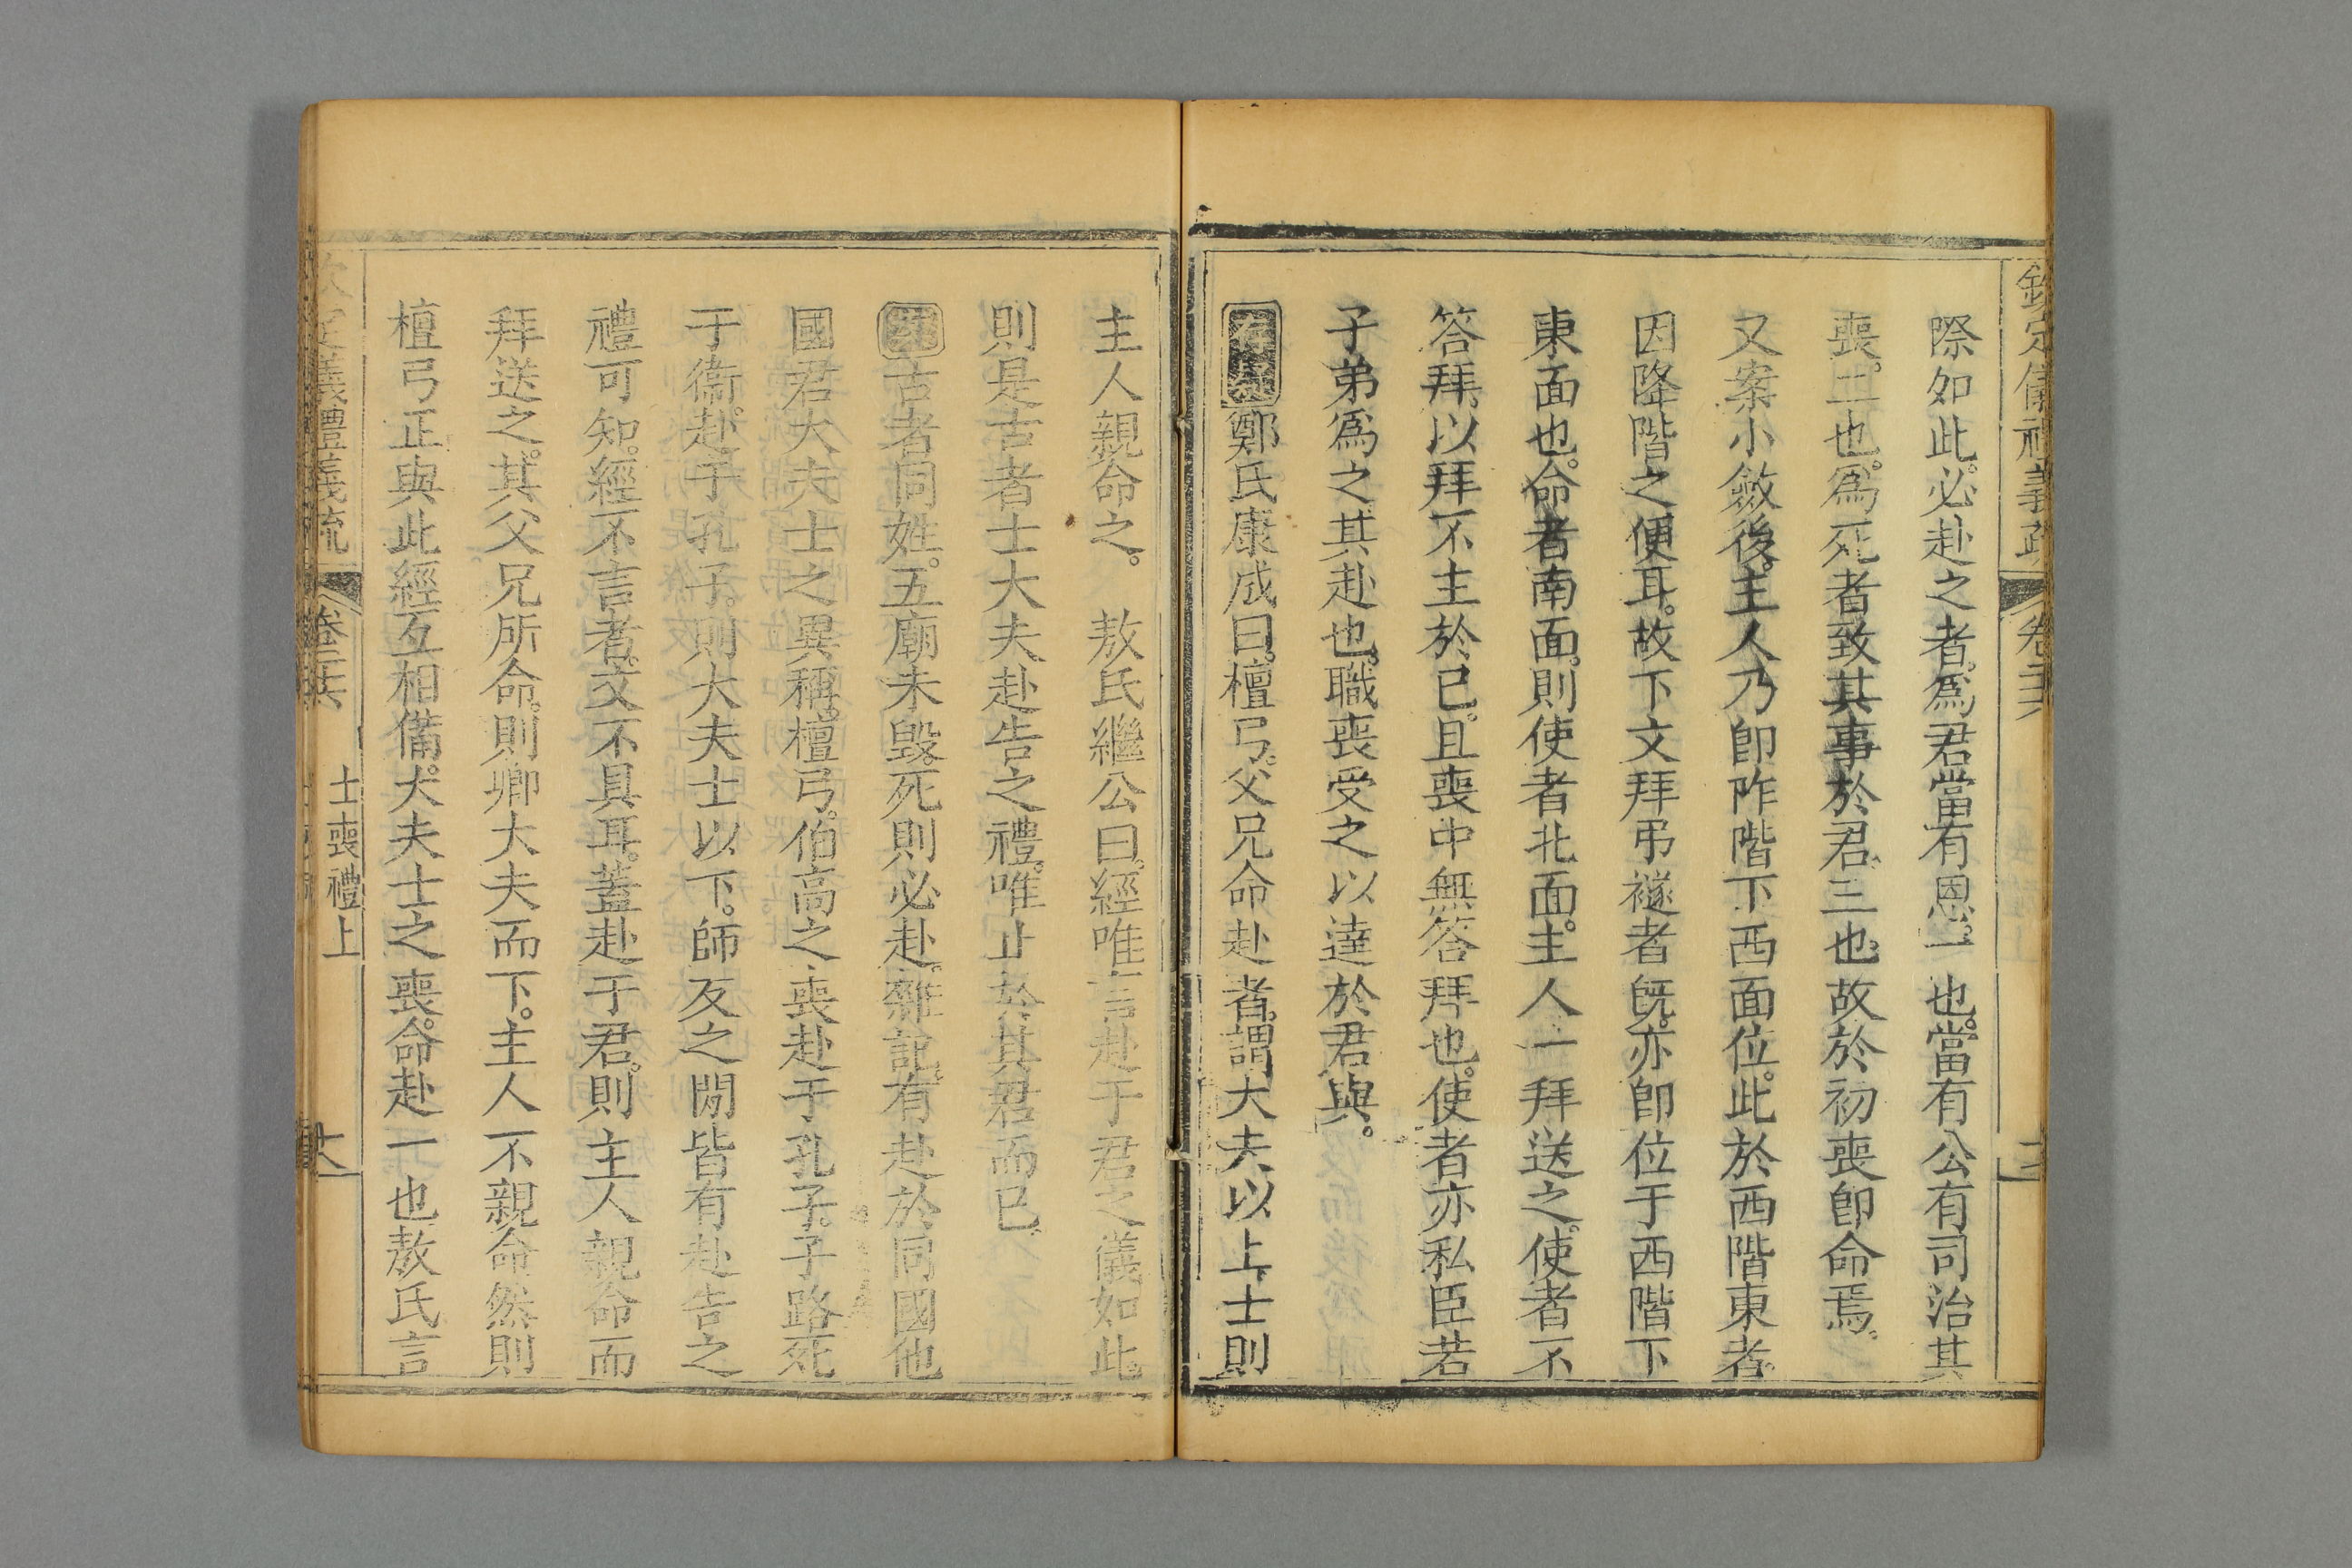 欽定儀禮義疏 卷二十六
際如此。必赴之者。爲君當有恩。一也。當有公有司治其
喪。二也。爲死者致其事於君。三也。故於初喪卽命焉。
又案小斂後。主人乃卽阼階下西面位。此於西階東者。
因降階之便耳。故下文拜弔襚者旣。亦卽位于西階下
東面也。命者南面。則使者北面。主人一拜送之。使者不
答拜。以拜不主於己。且喪中無答拜也。使者亦私臣若
子弟爲之。其赴也。職喪受之以達於君與。
存疑鄭氏康成曰。檀弓。父兄命赴者。謂大夫以上。士則
主人親命之。 敖氏繼公曰。經唯言赴于君之儀如此。
則是古者士大夫赴告之禮。唯止於其君而已。
古者同姓。五廟未毀。死則必赴。雜記。有赴於同國他
國君大夫士之異稱。檀弓。伯高之喪赴于孔子。子路死
于衞。赴于孔子。則大夫士以下。師友之閒皆有赴告之
禮可知。經不言者。文不具耳。蓋赴于君。則主人親命而
拜送之。其父兄所命。則卿大夫而下。主人不親命。然則
檀弓正與此經互相備。大夫士之喪。命赴一也。敖氏言
義禮義疏 卷二十六 士喪禮上